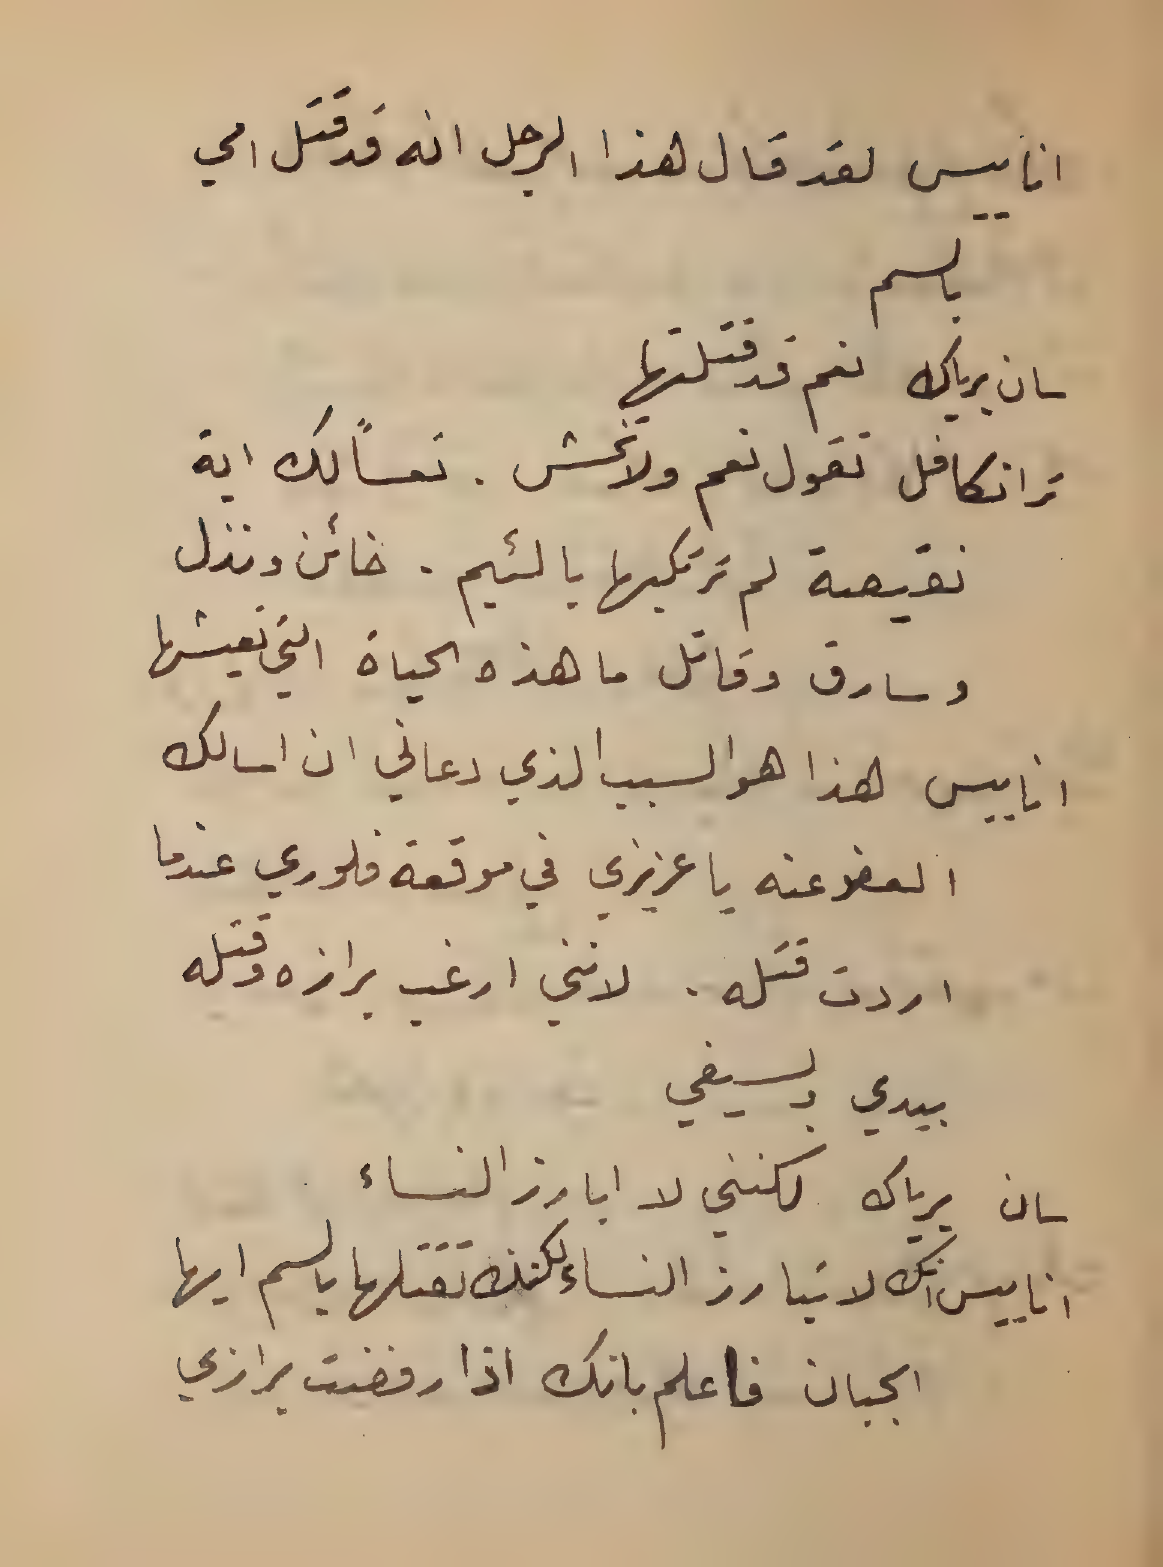 اناييس لقد قال هذا الرجل انه قد قتل امي
بالسم
سان برياك نعم قد قتلتها
ترانكافل تقول نعم ولا تخش . تعساً لك اية
نقيصة لم ترتكبها يا لئيم . خائن ونذل
وسارق وقاتل ما هذه الحياة التي تعيشها
اناييس هذا هو السبب الذي دعاني ان اسالك
العفو عنه يا عزيزي في موقعة فلوري عندما
اردت قتله . لانني ارغب برازه وقتله
بيدي وبسيفي
سان برياك لكنني لا ابارز النساء
اناييس انك لا تبارز النساء لكنك تقتلها بالسم ايها
الجبان فاعلم بانك اذا رفضت برازي